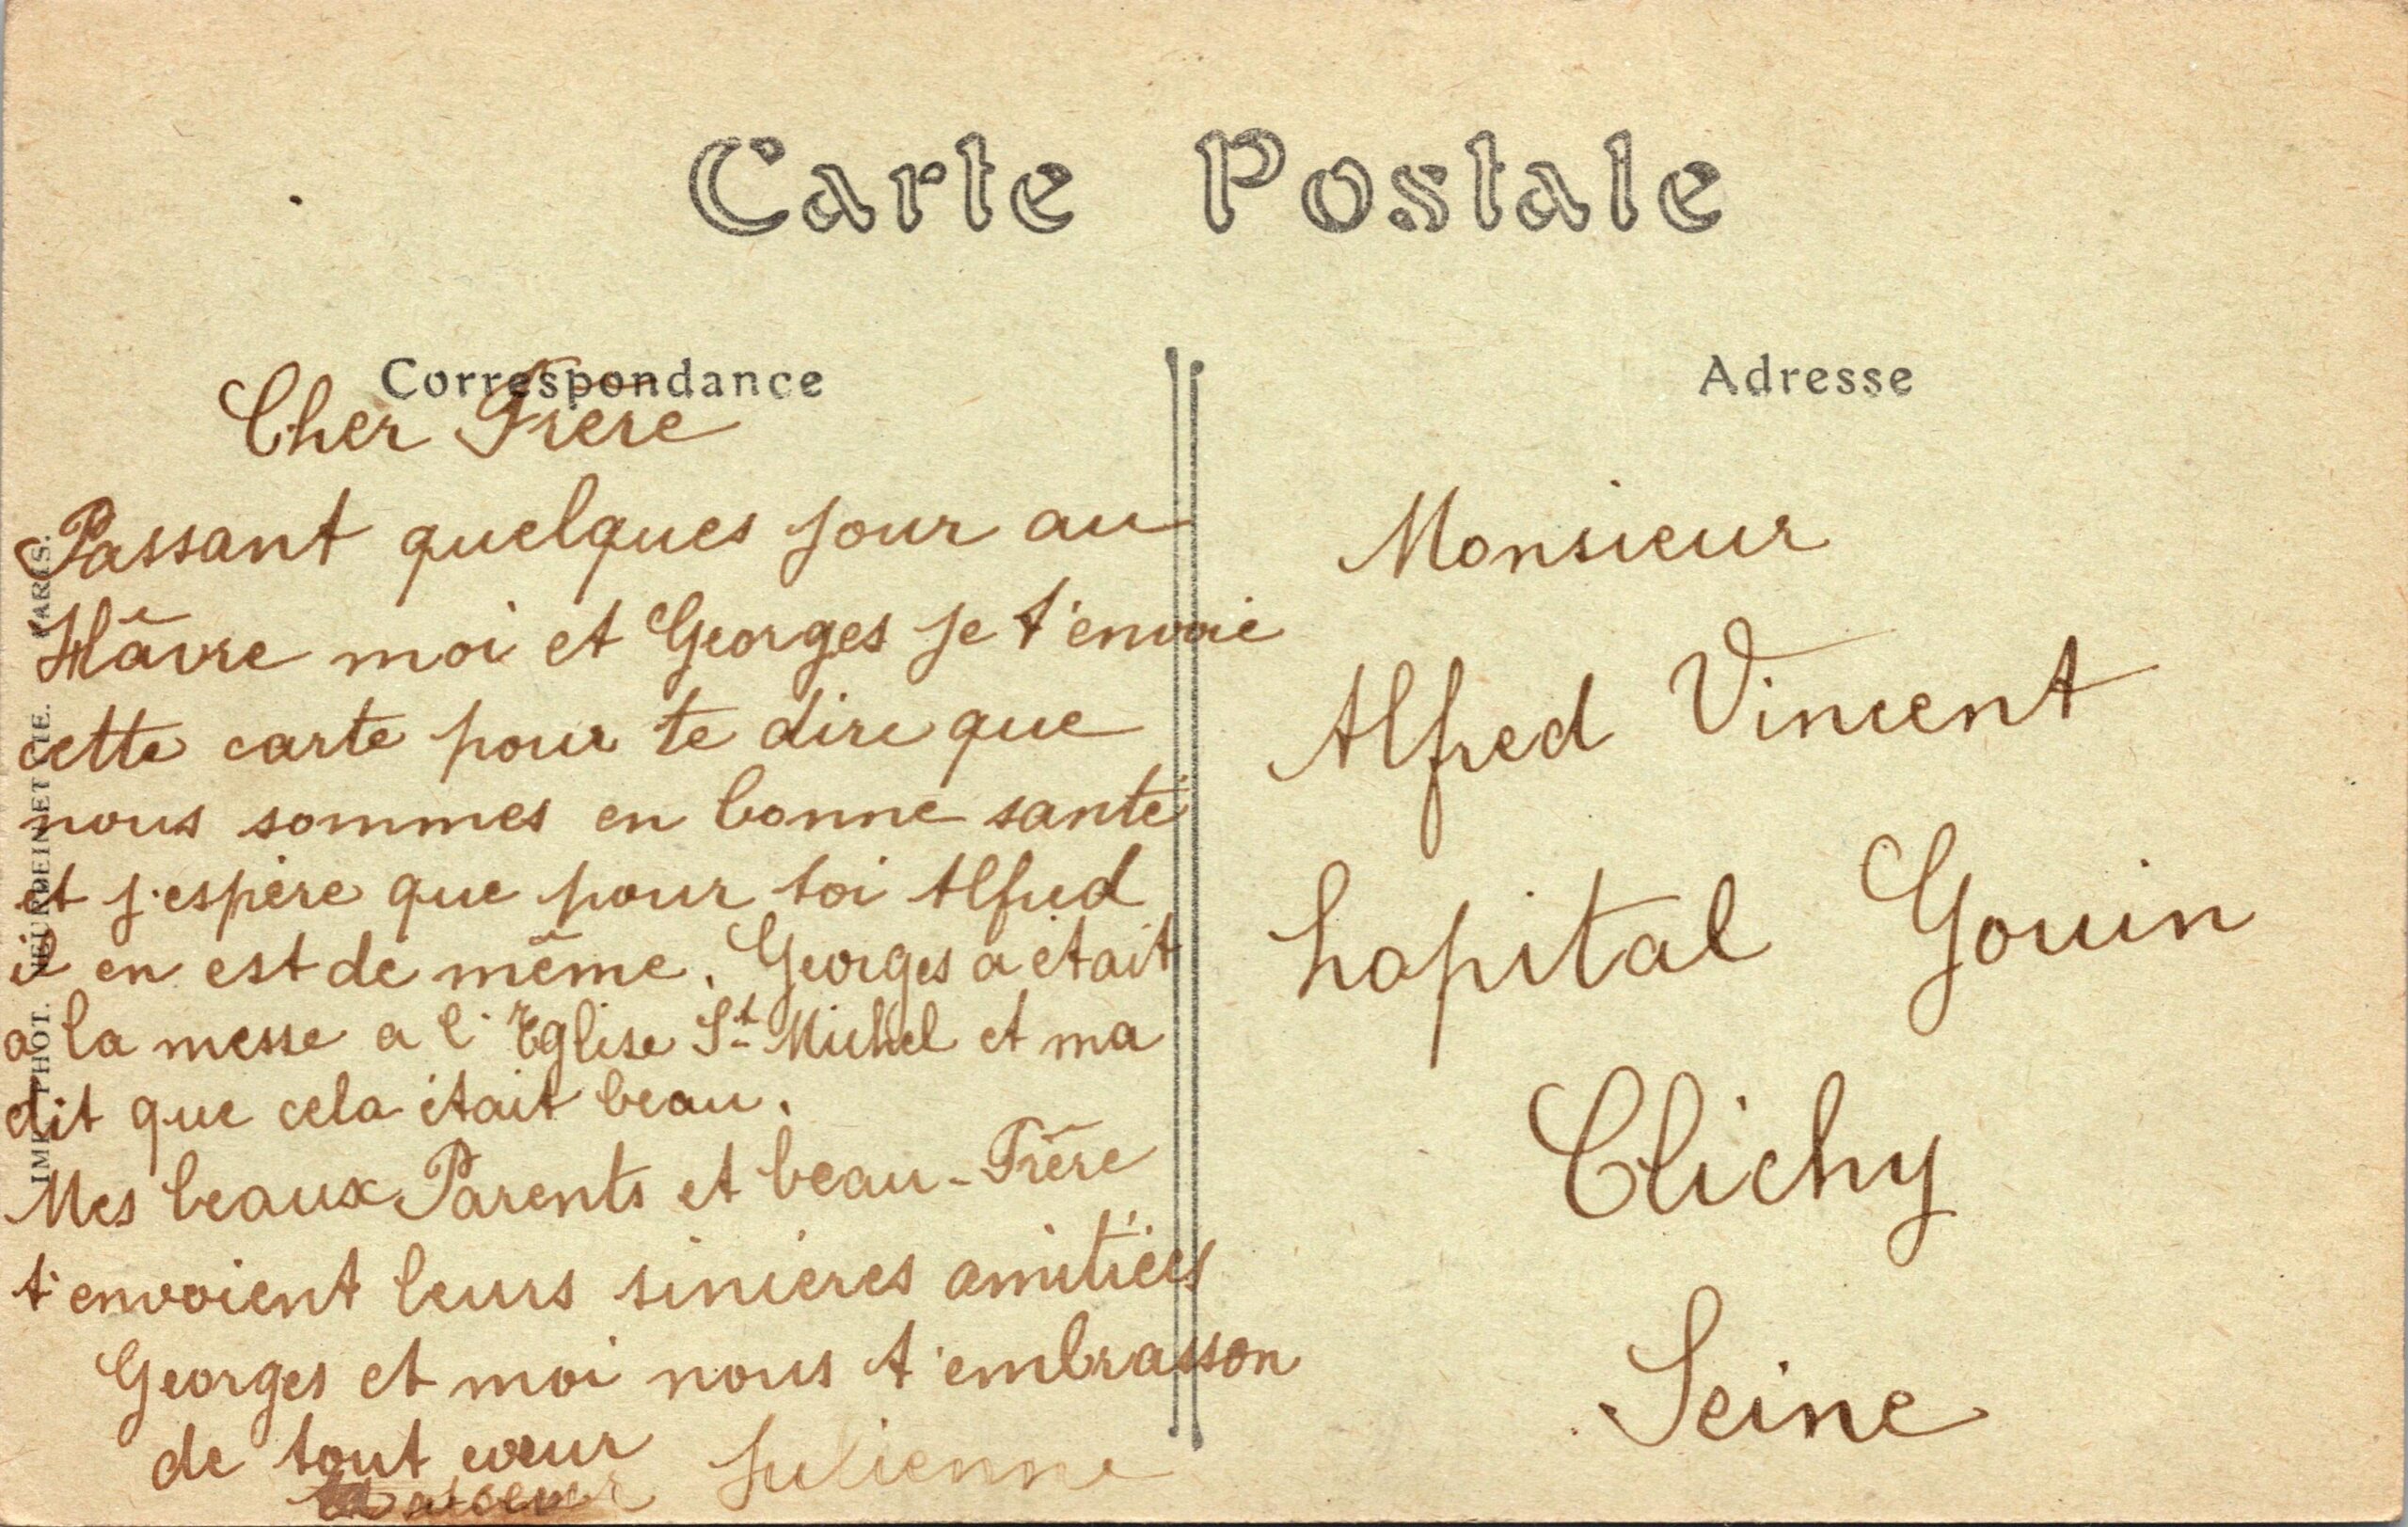 Carte Postale
Correspondance
Cher Frère
Passant quelques jour au
Hâvre moi et Georges je t'envoie
cette carte pour te dire que
nous sommes en bonne santé
et j'espère que pour toi Alfred
il en est de même. Georges a était
a la messe a l'Eglise St Michel et ma
dit que cela était beau.
Mes beaux Parents et beau-Frère
t'envoient leurs sinceres amitiées
Georges et moi nous t'embrasson
de tout cœur
Ta sœur Julienne
Adresse
Monsieur
Alfred Vincent
hopital Gouin
Clichy
Seine
IMP. PHOT. NEURDEIN ET CIE. PARIS.